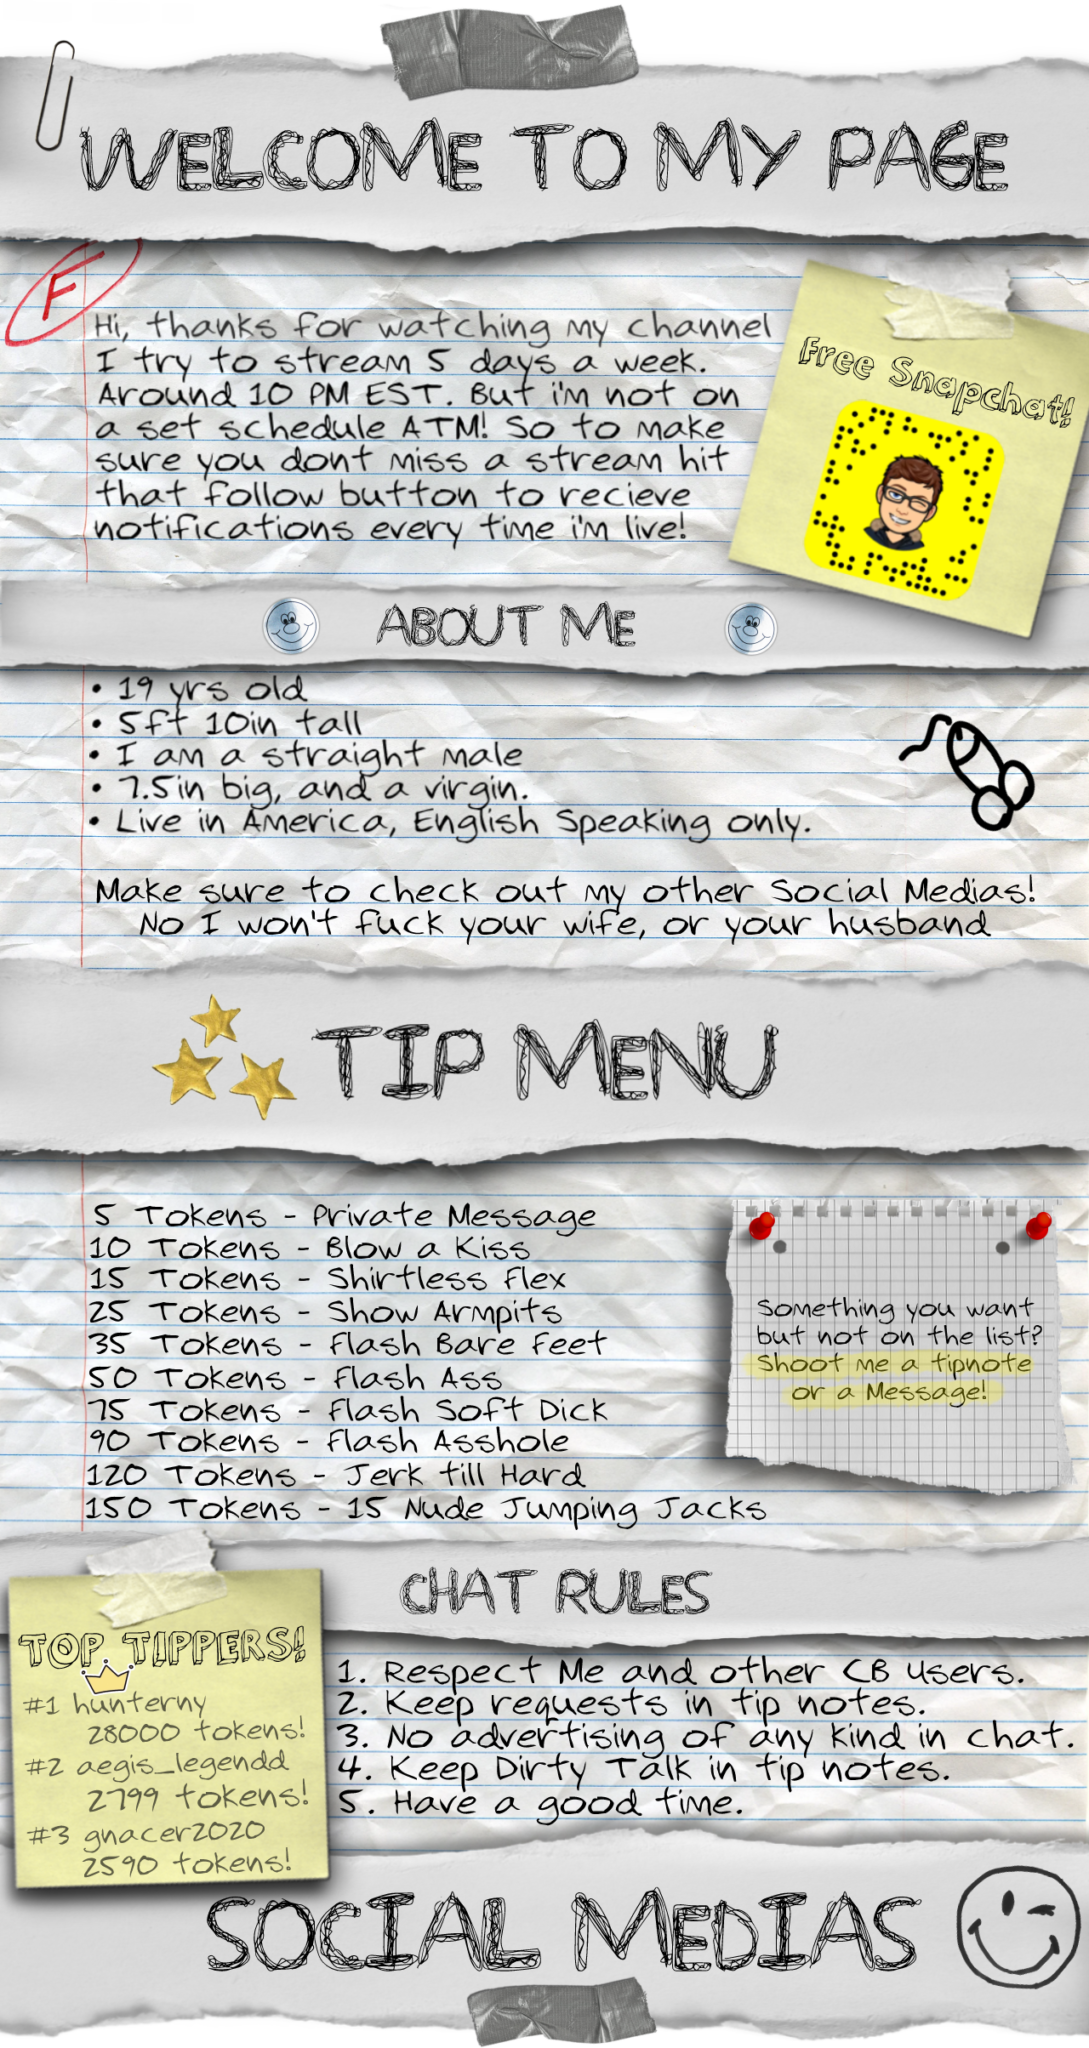 WELCOME TO MY PAGE
F
Hi, thanks for watching my channel
I try to stream 5 days a week.
Around 10 PM EST. But i'm not on
a set schedule ATM! So to make
sure you dont miss a stream hit
that follow button to recieve
notifications every time i'm live!
Free Snapchat!
ABOUT ME
• 19 yrs old
• 5ft 10in tall
• I am a straight male
• 7.5in big, and a virgin.
• Live in America, English Speaking only.
Make sure to check out my other Social Medias!
No I won't fuck your wife, or your husband
TIP MENU
5 Tokens - Private Message
10 Tokens - Blow a Kiss
15 Tokens - Shirtless Flex
25 Tokens - Show Armpits
35 Tokens - Flash Bare Feet
50 Tokens - Flash Ass
75 Tokens - Flash Soft Dick
90 Tokens - Flash Asshole
120 Tokens - Jerk till Hard
150 Tokens - 15 Nude Jumping Jacks
Something you want
but not on the list?
Shoot me a tipnote
or a Message!
CHAT RULES
1. Respect Me and other CB Users.
2. Keep requests in tip notes.
3. No advertising of any kind in chat.
4. Keep Dirty Talk in tip notes.
5. Have a good time.
TOP TIPPERS!
#1 hunterny
28000 tokens!
#2 aegis_legendd
2799 tokens!
#3 gnacer2020
2590 tokens!
SOCIAL MEDIAS